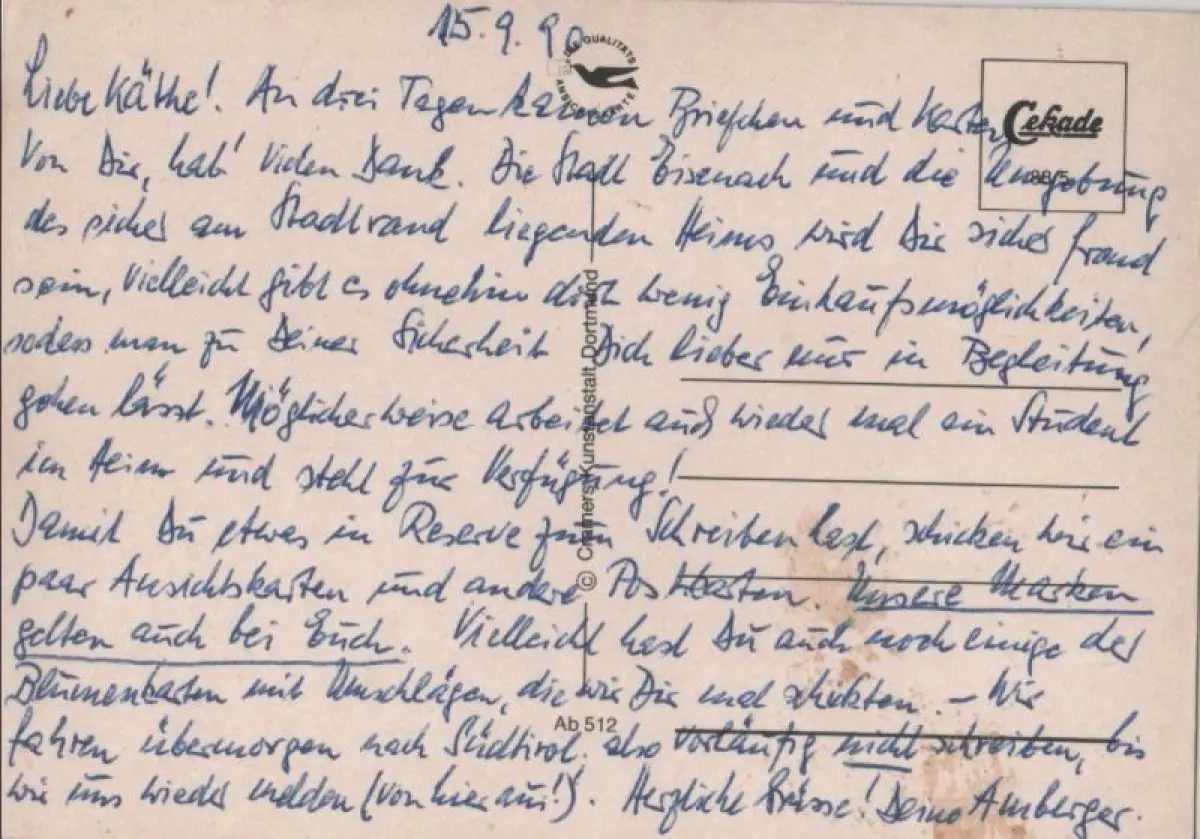 15.9.90
EINE QUALITÄTS
ANSICHTSKARTE
Cekade
88/5
Liebe Käthe! An drei Tagen kamen Briefchen und Karten
von Dir, hab' vielen Dank. Die Stadt Eisenach und die Umgebung
des sicher am Stadtrand liegenden Heims wird Dir sicher fremd
sein, vielleicht gibt es ohnehin dort wenig Einkaufsmöglichkeiten,
sodass man zu Deiner Sicherheit Dich lieber nur in Begleitung
gehen lässt. Möglicherweise arbeitet auch wieder mal ein Student
im Heim und steht zur Verfügung!
Damit Du etwas in Reserve zum Schreiben hast, schicken wir ein
paar Ansichtskarten und andere Postkarten. Unsere Marken
gelten auch bei Euch. Vielleicht hast Du auch noch einige der
Blumenkarten mit Umschlägen, die wir Dir mal schickten. – Wir
fahren übermorgen nach Südtirol. also vorläufig nicht schreiben, bis
wir uns wieder melden (von hier aus!). Herzliche Grüsse! Deine Amberger.
© Cramers Kunstanstalt Dortmund
Ab 512